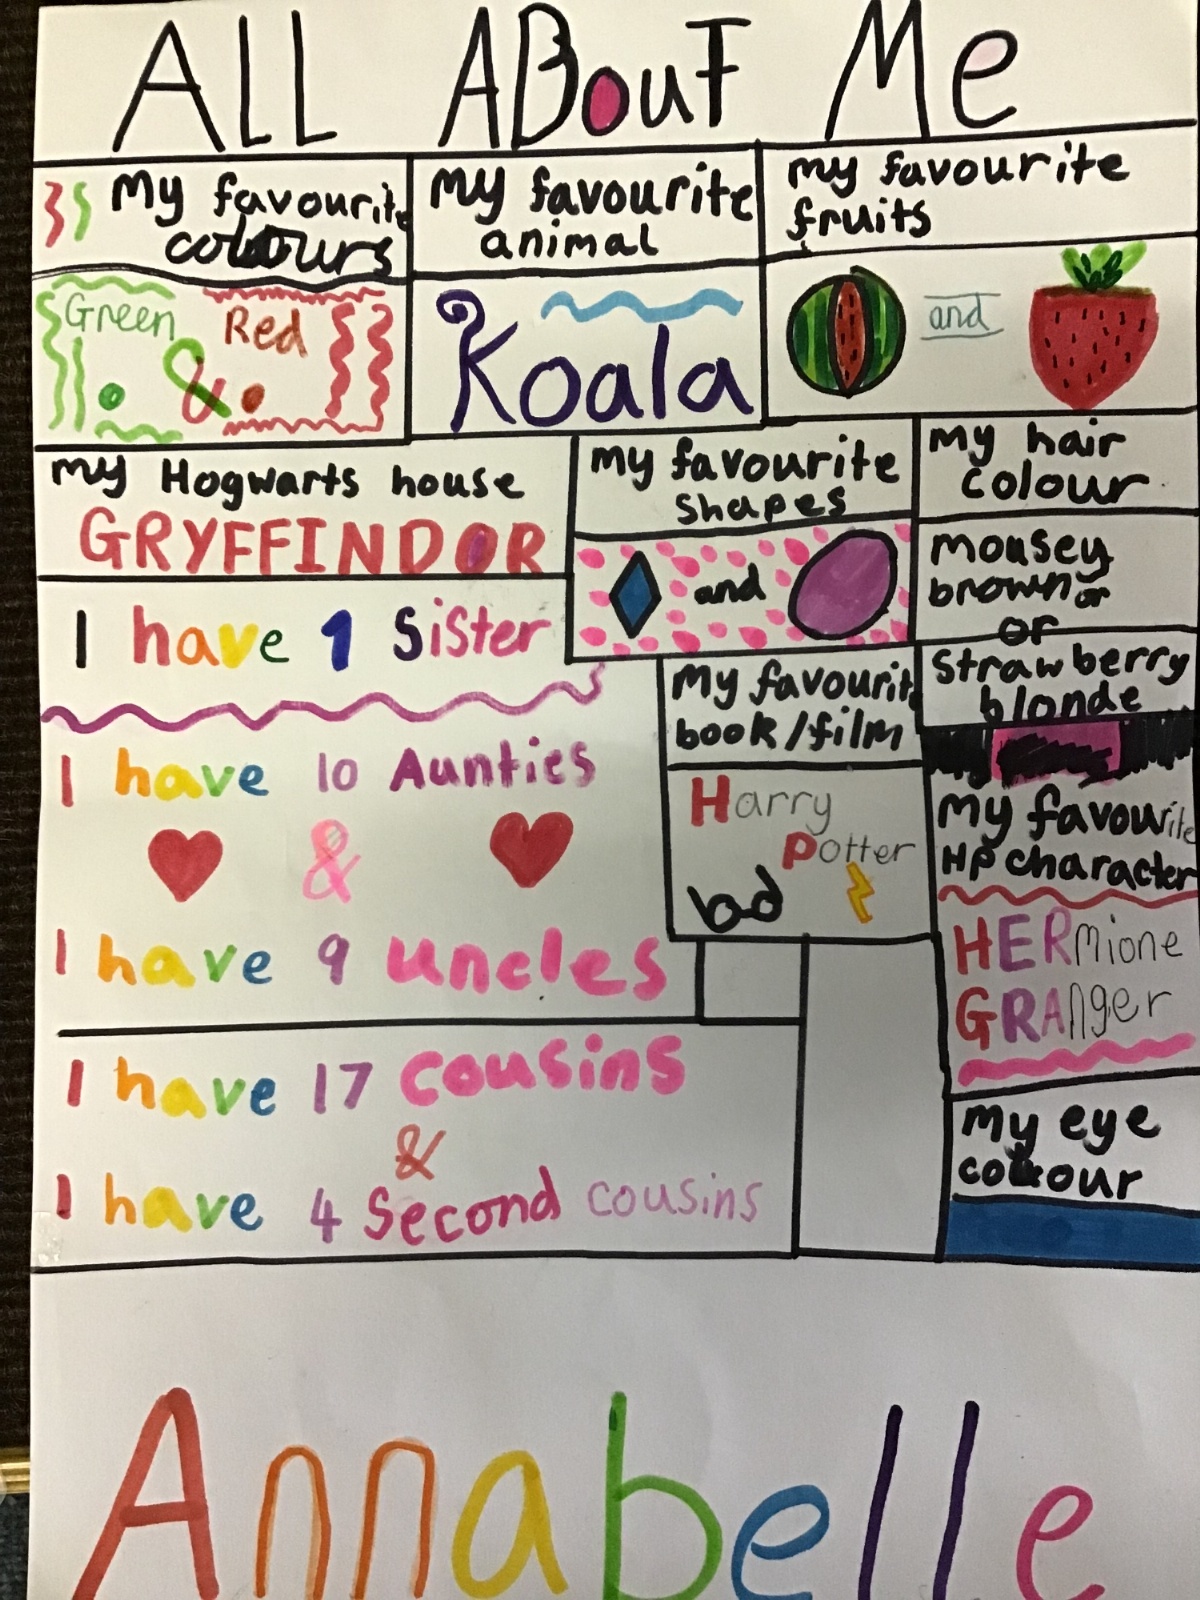 ALL ABouT Me
my favourite
colours
my favourite
animal
my favourite
fruits
Green & Red
Koala
and
my Hogwarts house
GRYFFINDOR
my favourite
shapes
and
my hair
colour
mousey
brown or
or
strawberry
blonde
I have 1 Sister
I have 10 Aunties
&
I have 9 uncles
my favourit
book/film
Harry
Potter
my favourite
HP character
HERmione
GRAnger
I have 17 cousins
&
I have 4 Second cousins
my eye
colour
Annabelle